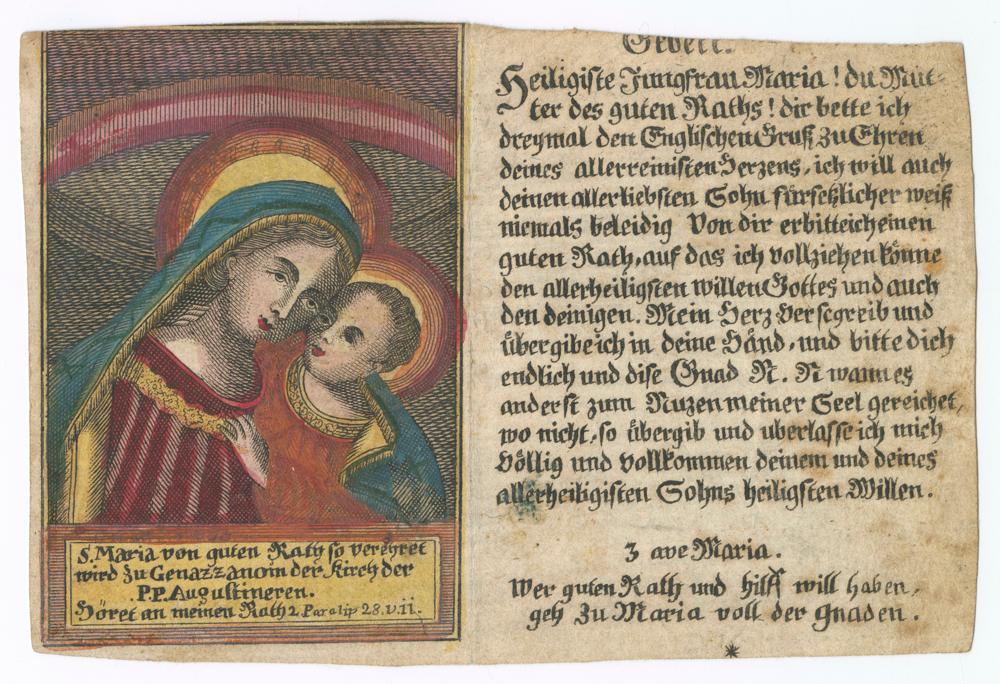 S. Maria von guten Rath so verehret
wird zu Genazzano in der Kirch der
PP. Augustineren.
Höret an meinen Rath 2 Paralip 28. v. ii.
Gebett.
Heiligiste Jungfrau Maria ! du Mut-
ter des guten Raths ! dir bette ich
dreymal den Englischen Gruß zu Ehren
deines allerreinisten Herzens, ich will auch
deinen allerliebsten Sohn fürsetzlicher weiß
niemals beleidig Von dir erbitte ich einen
guten Rath, auf das ich vollziehen könne
den allerheiligsten willen Gottes und auch
den deinigen. Mein Herz verscgreib und
übergibe ich in deine Händ, und bitte dich
endlich und dise Gnad N. N wann es
anderst zum Nuzen meiner Seel gereichet,
wo nicht, so übergib und uberlasse ich mich
Völlig und vollkommen deinem und deines
allerheiligisten Sohns heiligsten Willen.
3 ave Maria.
Wer guten Rath und hilff will haben,
geh zu Maria voll der gnaden.